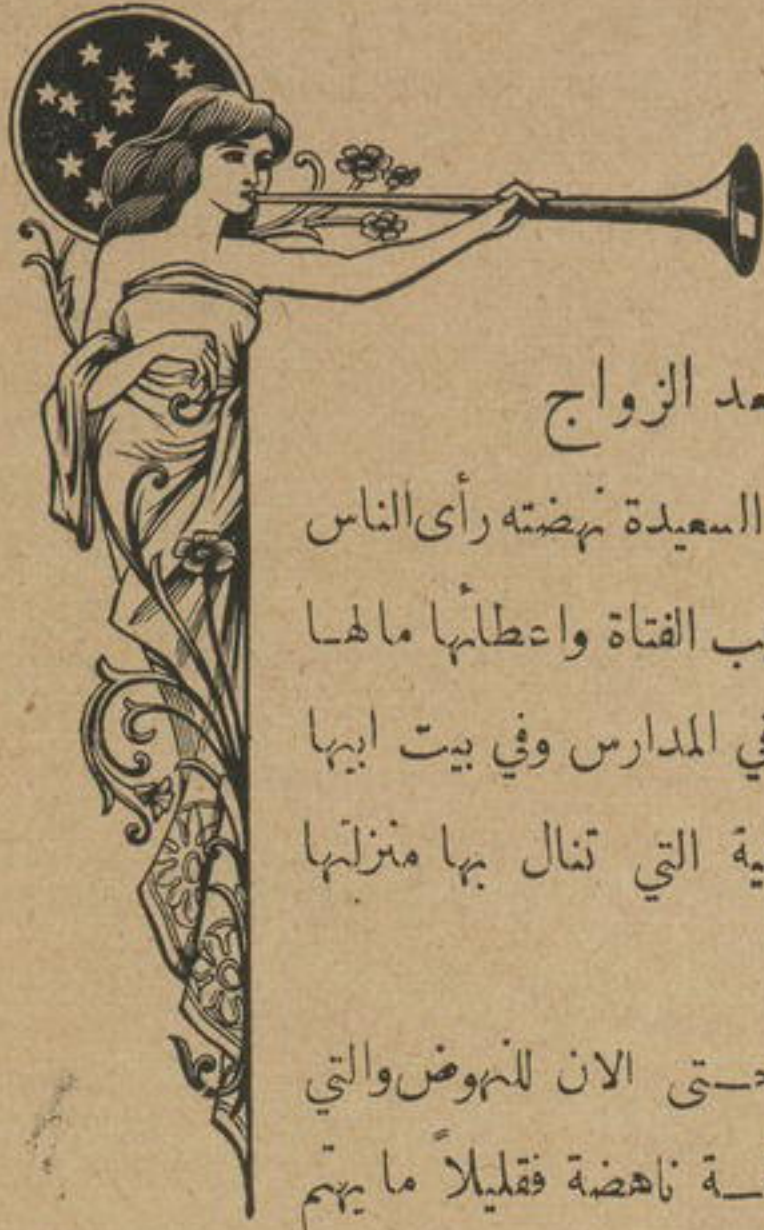 الزواج
السعيدة نهضته رأى الناس
الفتاة واعطائها ما لها
في المدارس وفي بيت ابيها
التي تنال بها منزلتها
الان للنهوض والتي
ناهضة فقليلاً ما يهتم